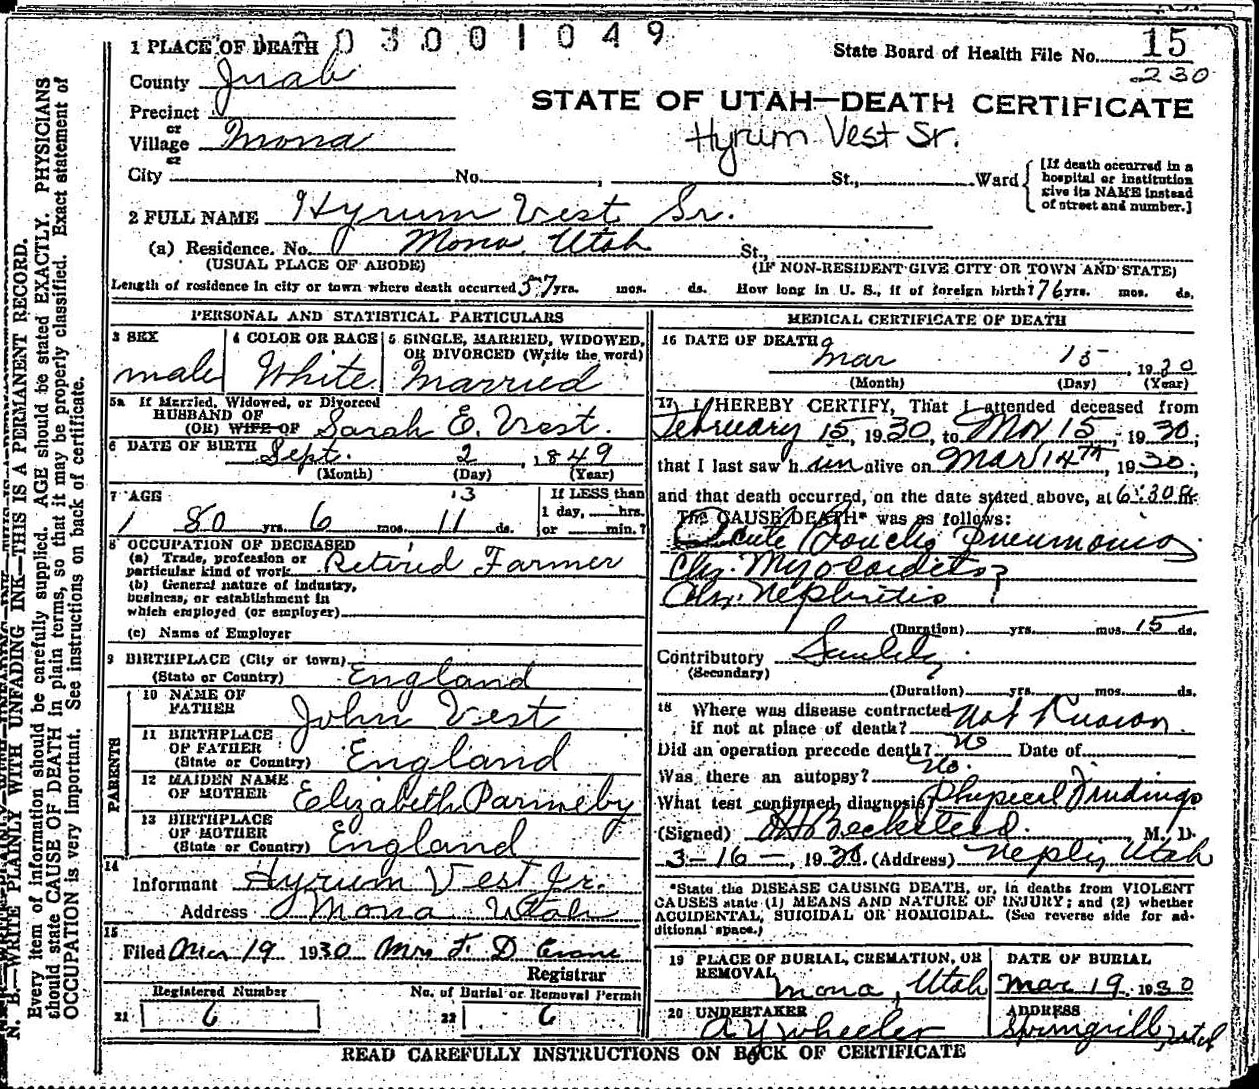 N. B.—WRITE PLAINLY WITH UNFADING INK—THIS IS A PERMANENT RECORD.
Every item of information should be carefully supplied. AGE should be stated EXACTLY. PHYSICIANS
should state CAUSE OF DEATH in plain terms, so that it may be properly classified. Exact statement of
OCCUPATION is very important. See instructions on back of certificate.
03001049
1 PLACE OF DEATH
State Board of Health File No. 15
230
County Juab
STATE OF UTAH—DEATH CERTIFICATE
Precinct
or
Village Mona
Hyrum Vest Sr.
or
City No. , St., Ward
[If death occurred in a
hospital or institution
give its NAME instead
of street and number.]
2 FULL NAME Hyrum Vest Sr.
(a) Residence. No. Mona, Utah St.,
(USUAL PLACE OF ABODE) (IF NON-RESIDENT GIVE CITY OR TOWN AND STATE)
Length of residence in city or town where death occurred 57 yrs. mos. ds. How long in U. S., if of foreign birth? 76 yrs. mos. ds.
PERSONAL AND STATISTICAL PARTICULARS
3 SEX
male
4 COLOR OR RACE
White
5 SINGLE, MARRIED, WIDOWED,
OR DIVORCED (Write the word)
Married
5a If Married, Widowed, or Divorced
HUSBAND OF
(OR) WIFE OF Sarah E. Vest.
6 DATE OF BIRTH Sept. 2, 1849
(Month) (Day) (Year)
7 AGE 13
1 80 yrs. 6 mos. 11 ds.
If LESS than
1 day, hrs.
or min.?
8 OCCUPATION OF DECEASED
(a) Trade, profession or
particular kind of work Retired Farmer
(b) General nature of industry,
business, or establishment in
which employed (or employer)
(c) Name of Employer
9 BIRTHPLACE (City or town)
(State or Country) England
PARENTS
10 NAME OF
FATHER John Vest
11 BIRTHPLACE
OF FATHER
(State or Country) England
12 MAIDEN NAME
OF MOTHER Elizabeth Parmeby
13 BIRTHPLACE
OF MOTHER
(State or Country) England
14
Informant Hyrum Vest Jr.
Address Mona Utah
15
Filed Mar 19 1930 Mrs F. D Evans
Registrar
Registered Number
21 6
No. of Burial or Removal Permit
22 6
MEDICAL CERTIFICATE OF DEATH
16 DATE OF DEATH
Mar 15, 1930
(Month) (Day) (Year)
17 I HEREBY CERTIFY, That I attended deceased from
February 15, 1930, to Mar 15, 1930;
that I last saw him alive on Mar 14th, 1930;
and that death occurred, on the date stated above, at 6:30
The CAUSE DEATH* was as follows:
Acute Broncho Pneumonia
Chr. Myocarditis?
Chr. Nephritis
(Duration) yrs. mos. 15 ds.
Contributory Senility
(Secondary)
(Duration) yrs. mos. ds.
18 Where was disease contracted
if not at place of death? Not Known
Did an operation precede death? No Date of
Was there an autopsy? No.
What test confirmed diagnosis? Physical Findings
(Signed) Beckstead. M. D.
3-16-, 1930 (Address) Nephi, Utah
*State the DISEASE CAUSING DEATH, or, in deaths from VIOLENT
CAUSES state (1) MEANS AND NATURE OF INJURY; and (2) whether
ACCIDENTAL, SUICIDAL OR HOMICIDAL. (See reverse side for ad-
ditional space.)
19 PLACE OF BURIAL, CREMATION, OR
REMOVAL
Mona, Utah
DATE OF BURIAL
Mar 19, 1930
20 UNDERTAKER
A Y Wheeler
ADDRESS
Springville, Utah
READ CAREFULLY INSTRUCTIONS ON BACK OF CERTIFICATE